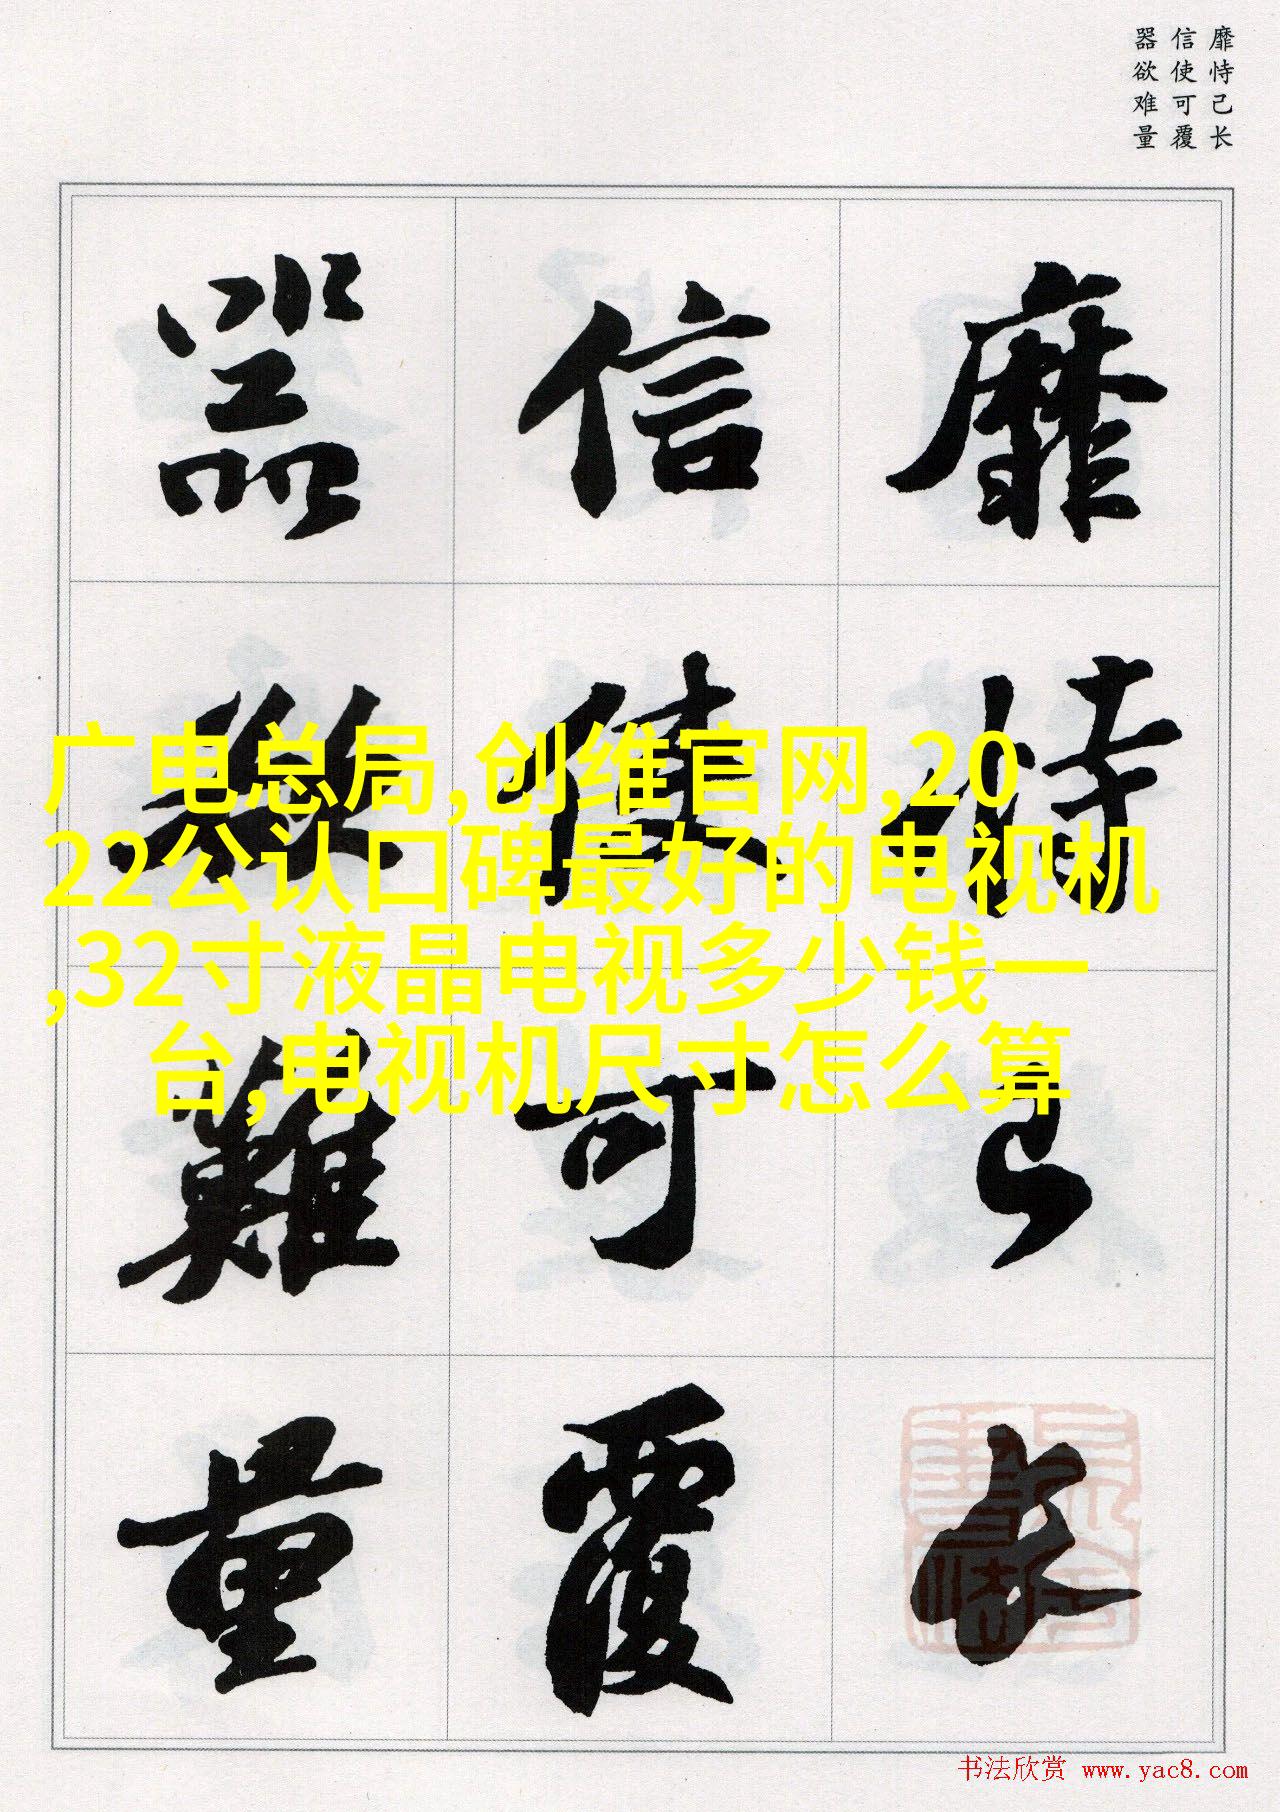 靡恃己长
信使可覆
器欲难量
靡恃己长
信使可覆
器欲難量
广电总局,创维官网,20
22公认口碑最好的电视机
,32寸液晶电视多少钱一
台,电视机尺寸怎么算
书法欣赏 www.yac8.com